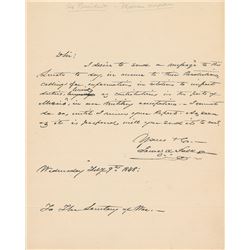 Sir:
I desire to send a message to the
Senate to day, in answer to their Resolution
calling for information in relation to import
duties, as contributions in the ports of
Mexico in our Military occupation. I cannot
do so, until I receive your Report. As soon
as it is prepared, will you send it to me?
Yours &c.
James K. Polk
Wednesday Feby 9th 1848.
To The Secretary of War.